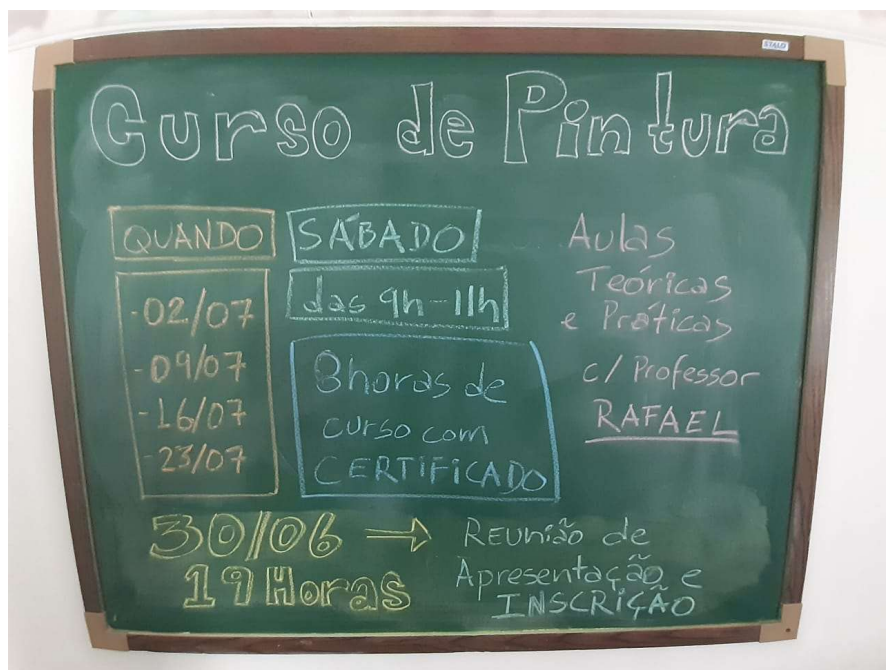 STALO
Curso de Pintura
QUANDO
-02/07
-09/07
-16/07
-23/07
SÁBADO
das 9h-11h
8horas de
curso com
CERTIFICADO
Aulas
Teóricas
e Práticas
c/ Professor
RAFAEL
30/06 →
19 Horas
REUNIãO de
Apresentação e
INSCRIÇÃO